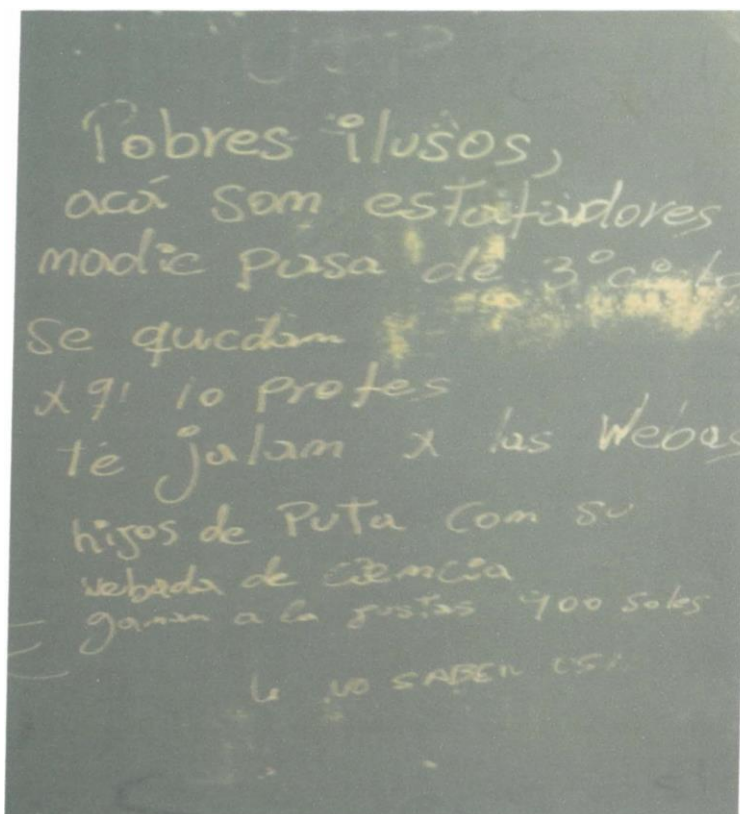 UTP
Pobres ilusos,
acá son estafadores
nadie pasa de 3° ciclo
se quedan
x q' lo profes
te jalan x las webas
hijos de PuTa con su
webada de ciencia
ganan a la justas 400 soles
NO SABEN